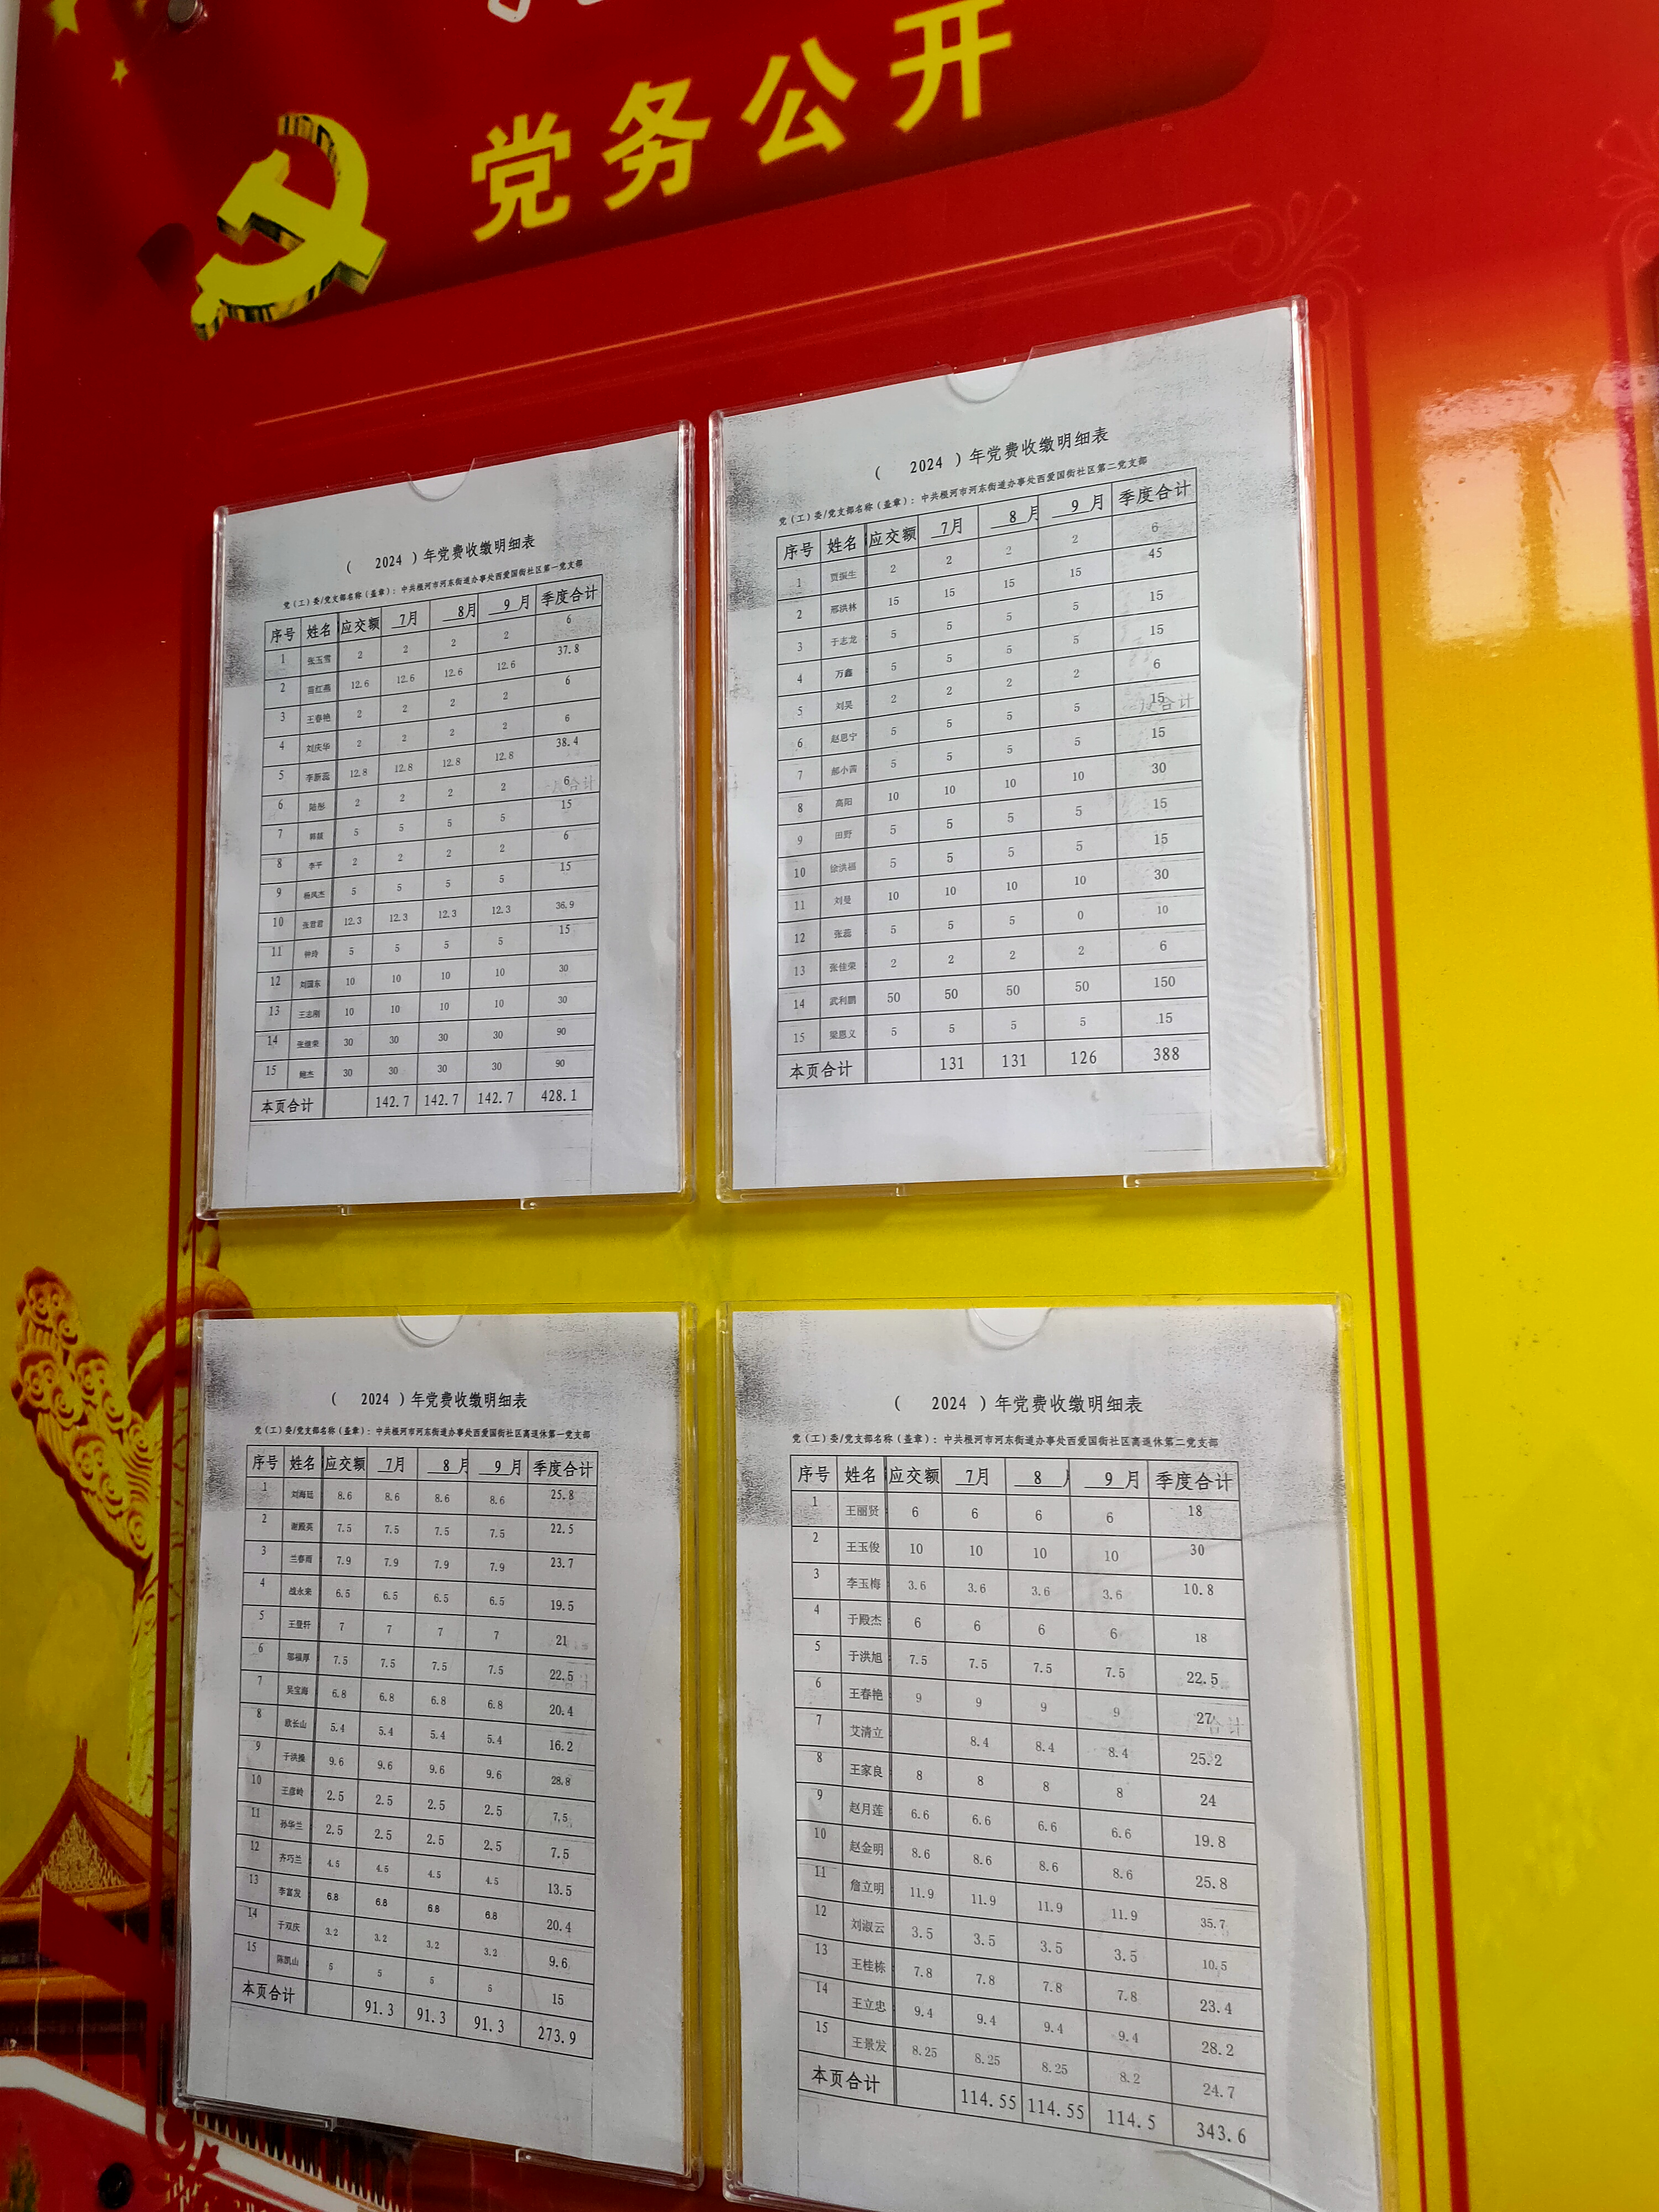 党务公开
( 2024 )年党费收缴明细表
党(工)委/党支部名称(盖章):中共根河市河东街道办事处西爱国街社区第一党支部
序号 姓名 应交额 7月 8月 9月 季度合计
1 张玉雪 2 2 2 2 6
2 苗红燕 12.6 12.6 12.6 12.6 37.8
3 王春艳 2 2 2 2 6
4 刘庆华 2 2 2 2 6
5 李新蕊 12.8 12.8 12.8 12.8 38.4
6 陆彤 2 2 2 2 6
7 5 5 5 5 15
8 李平 2 2 2 2 6
9 杨凤杰 5 5 5 5 15
10 张君君 12.3 12.3 12.3 12.3 36.9
11 钟玲 5 5 5 5 15
12 刘国东 10 10 10 10 30
13 王志刚 10 10 10 10 30
14 张继荣 30 30 30 30 90
15 鲍杰 30 30 30 30 90
本页合计 142.7 142.7 142.7 428.1
( 2024 )年党费收缴明细表
党(工)委/党支部名称(盖章):中共根河市河东街道办事处西爱国街社区第二党支部
序号 姓名 应交额 7月 8月 9月 季度合计
1 贾振生 2 2 2 2 6
2 邢洪林 15 15 15 15 45
3 于志龙 5 5 5 5 15
4 万鑫 5 5 5 5 15
5 刘昊 2 2 2 2 6
6 赵思宁 5 5 5 5 15
7 郝小茜 5 5 5 5 15
8 高阳 10 10 10 10 30
9 田野 5 5 5 5 15
10 徐洪福 5 5 5 5 15
11 刘曼 10 10 10 10 30
12 张蕊 5 5 5 0 10
13 张佳荣 2 2 2 2 6
14 武利鹏 50 50 50 50 150
15 梁恩义 5 5 5 5 15
本页合计 131 131 126 388
( 2024 )年党费收缴明细表
党(工)委/党支部名称(盖章):中共根河市河东街道办事处西爱国街社区离退休第一党支部
序号 姓名 应交额 7月 8月 9月 季度合计
1 刘海廷 8.6 8.6 8.6 8.6 25.8
2 谢殿英 7.5 7.5 7.5 7.5 22.5
3 兰春雨 7.9 7.9 7.9 7.9 23.7
4 战永来 6.5 6.5 6.5 6.5 19.5
5 王登轩 7 7 7 7 21
6 邢福厚 7.5 7.5 7.5 7.5 22.5
7 吴宝海 6.8 6.8 6.8 6.8 20.4
8 敖长山 5.4 5.4 5.4 5.4 16.2
9 于洪操 9.6 9.6 9.6 9.6 28.8
10 王彦岭 2.5 2.5 2.5 2.5 7.5
11 孙华兰 2.5 2.5 2.5 2.5 7.5
12 齐巧兰 4.5 4.5 4.5 4.5 13.5
13 李富发 6.8 6.8 6.8 6.8 20.4
14 于双庆 3.2 3.2 3.2 3.2 9.6
15 陈凯山 5 5 5 5 15
本页合计 91.3 91.3 91.3 273.9
( 2024 )年党费收缴明细表
党(工)委/党支部名称(盖章):中共根河市河东街道办事处西爱国街社区离退休第二党支部
序号 姓名 应交额 7月 8 9月 季度合计
1 王丽贤 6 6 6 6 18
2 王玉俊 10 10 10 10 30
3 李玉梅 3.6 3.6 3.6 3.6 10.8
4 于殿杰 6 6 6 6 18
5 于洪旭 7.5 7.5 7.5 7.5 22.5
6 王春艳 9 9 9 9 27
7 艾清立 8.4 8.4 8.4 25.2
8 王家良 8 8 8 8 24
9 赵月莲 6.6 6.6 6.6 6.6 19.8
10 赵金明 8.6 8.6 8.6 8.6 25.8
11 詹立明 11.9 11.9 11.9 11.9 35.7
12 刘淑云 3.5 3.5 3.5 3.5 10.5
13 王桂栋 7.8 7.8 7.8 7.8 23.4
14 王立忠 9.4 9.4 9.4 9.4 28.2
15 王景发 8.25 8.25 8.25 8.2 24.7
本页合计 114.55 114.55 114.5 343.6